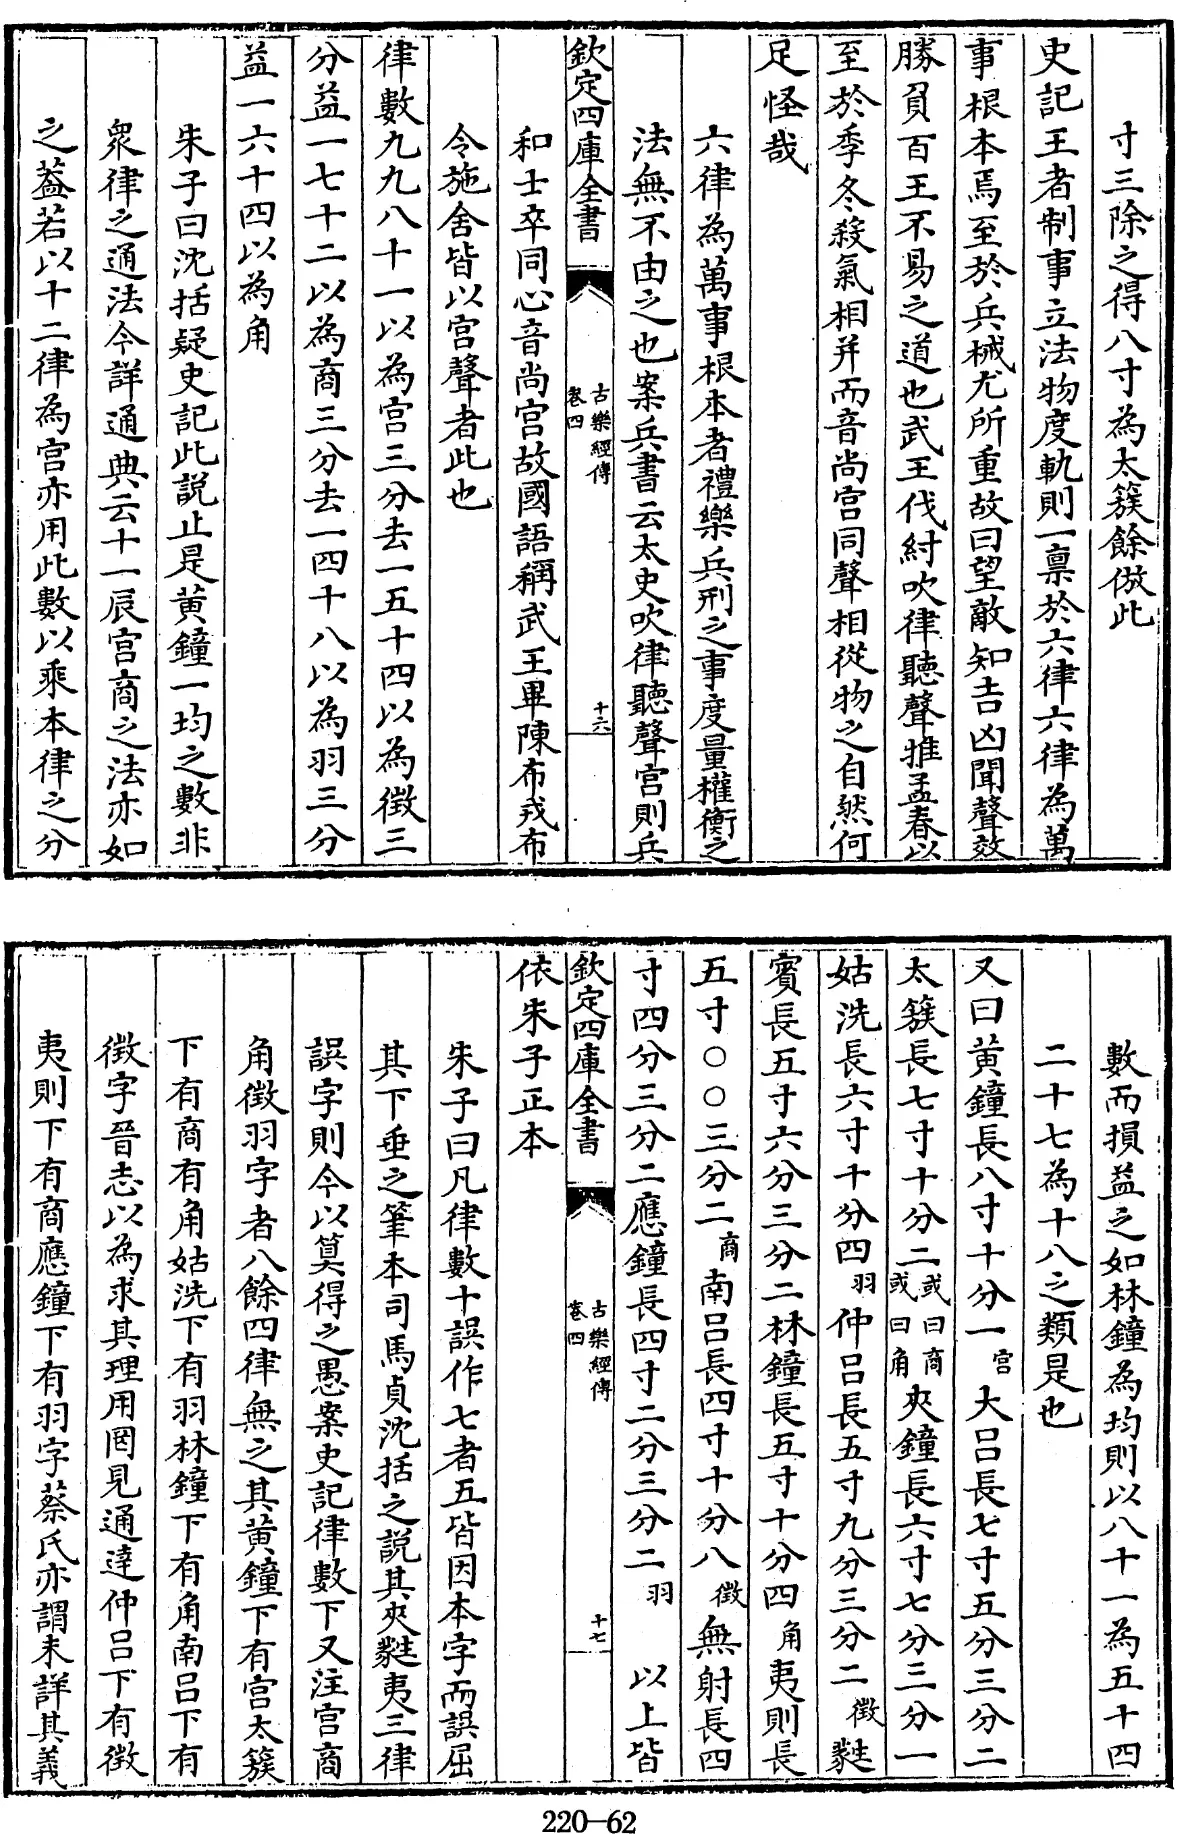 寸三除之得八寸為太簇餘倣此
史記王者制事立法物度軌則一禀於六律六律為萬
事根本焉至於兵械尤所重故曰望敵知吉凶聞聲效
勝負百王不易之道也武王伐紂吹律聽聲推孟春以
至於季冬殺氣相并而音尚宫同聲相從物之自然何
足怪哉
六律為萬事根本者禮樂兵刑之事度量權衡之
法無不由之也案兵書云太史吹律聽聲宫則兵
欽定四庫全書
古樂經傳
卷四
十六
和士卒同心音尚宫故國語稱武王畢陳布戎布
令施舍皆以宫聲者此也
律數九九八十一以為宫三分去一五十四以為徵三
分益一七十二以為商三分去一四十八以為羽三分
益一六十四以為角
朱子曰沈括疑史記此説止是黄鐘一均之數非
衆律之通法今詳通典云十一辰宫商之法亦如
之葢若以十二律為宫亦用此數以乘本律之分
數而損益之如林鐘為均則以八十一為五十四
二十七為十八之類是也
又曰黄鐘長八寸十分一宫大吕長七寸五分三分二
太簇長七寸十分二或曰商或曰角夾鐘長六寸七分三分一
姑洗長六寸十分四羽仲吕長五寸九分三分二徵蕤
賓長五寸六分三分二林鐘長五寸十分四角夷則長
五寸〇〇三分二商南吕長四寸十分八徵無射長四
寸四分三分二應鐘長四寸二分三分二羽 以上皆
欽定四庫全書
古樂經傳
卷四
十七
依朱子正本
朱子曰凡律數十誤作七者五皆因本字而誤屈
其下垂之筆本司馬貞沈括之説其夾蕤夷三律
誤字則今以算得之愚案史記律數下又注宫商
角徵羽字者八餘四律無之其黄鐘下有宫太簇
下有商有角姑洗下有羽林鐘下有角南吕下有
徵字晉志以為求其理用罔見通達仲吕下有徵
夷則下有商應鐘下有羽字蔡氏亦謂未詳其義
220-62